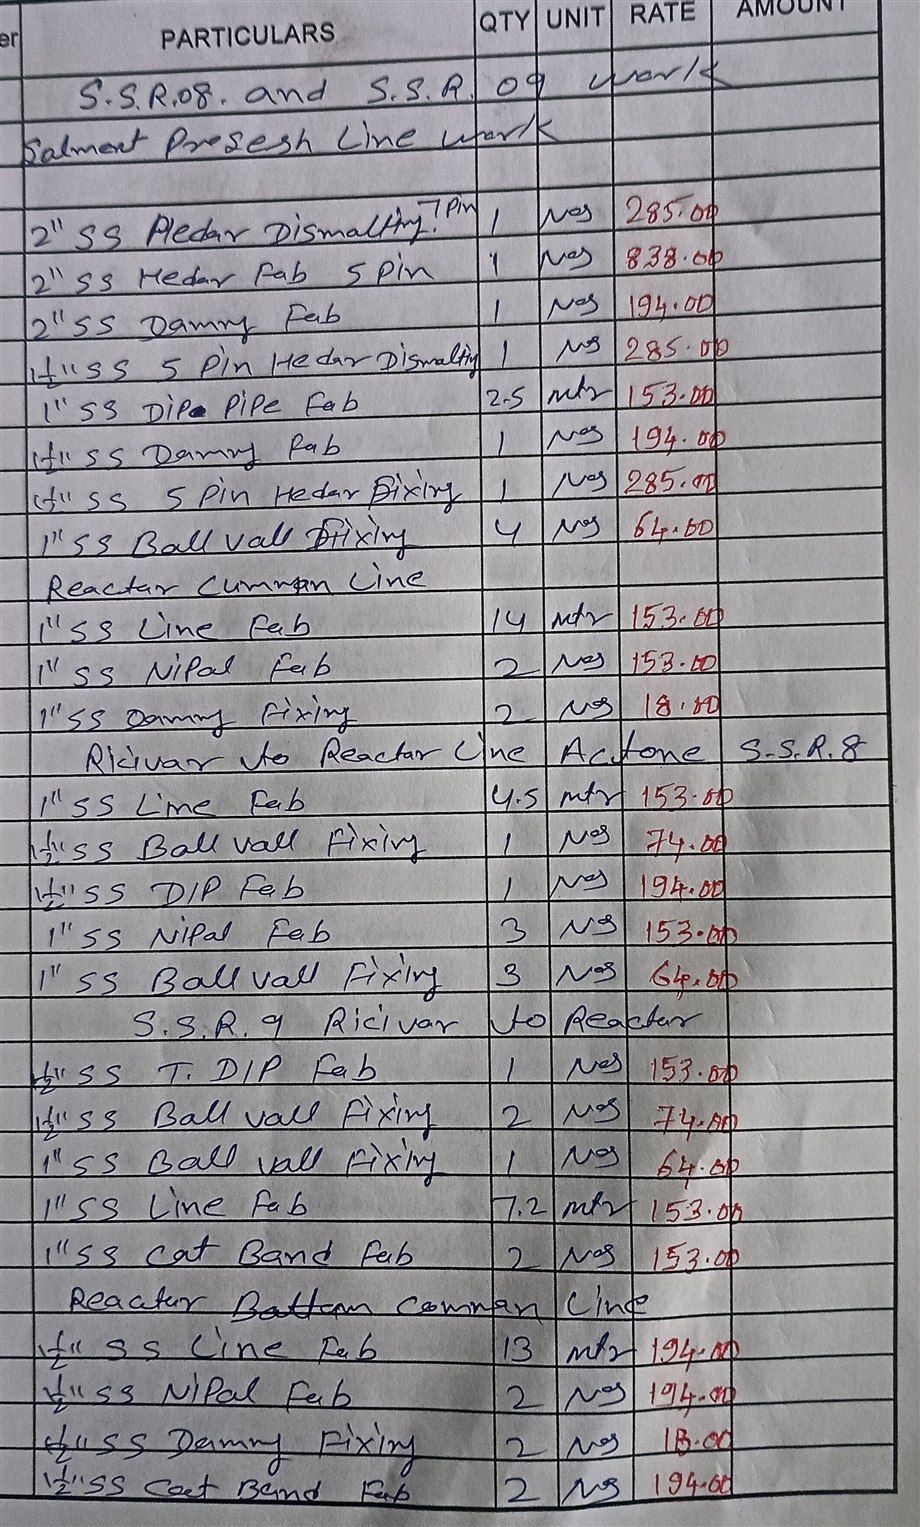 er PARTICULARS QTY UNIT RATE AMOUNT
S.S.R.08. and S.S.R. 09 work
Salment Prosesh Line work
2" SS Hedar Dismalting. 7 Pin 1 Nos 285.00
2" SS Hedar Fab 5 Pin 1 Nos 838.00
2" SS Dammy Fab 1 Nos 194.00
1½" SS 5 Pin Hedar Dismalting 1 Nos 285.00
1" SS Dip Pipe Fab 2.5 mtr 153.00
1½" SS Dammy Fab 1 Nos 194.00
1½" SS 5 Pin Hedar Fixing 1 Nos 285.00
1" SS Ball vall Fixing 4 Nos 64.00
Reactar Cumman Line
1" SS Line Fab 14 mtr 153.00
1" SS Nipal Fab 2 Nos 153.00
1" SS Dammy Fixing 2 Nos 18.00
Ricivar to Reactar Line Actone S.S.R.8
1" SS Line Fab 4.5 mtr 153.00
1½" SS Ball vall Fixing 1 Nos 74.00
1½" SS DIP Fab 1 Nos 194.00
1" SS Nipal Fab 3 Nos 153.00
1" SS Ball vall Fixing 3 Nos 64.00
S.S.R. 9 Ricivar to Reactar
1½" SS T. DIP Fab 1 Nos 153.00
1½" SS Ball vall Fixing 2 Nos 74.00
1" SS Ball vall Fixing 1 Nos 64.00
1" SS Line Fab 7.2 mtr 153.00
1" SS Cat Band Fab 2 Nos 153.00
Reactar Battam Comman Line
1½" SS Line Fab 13 mtr 194.00
1½" SS Nipal Fab 2 Nos 194.00
1½" SS Dammy Fixing 2 Nos 18.00
1½" SS Cat Band Fab 2 Nos 194.00